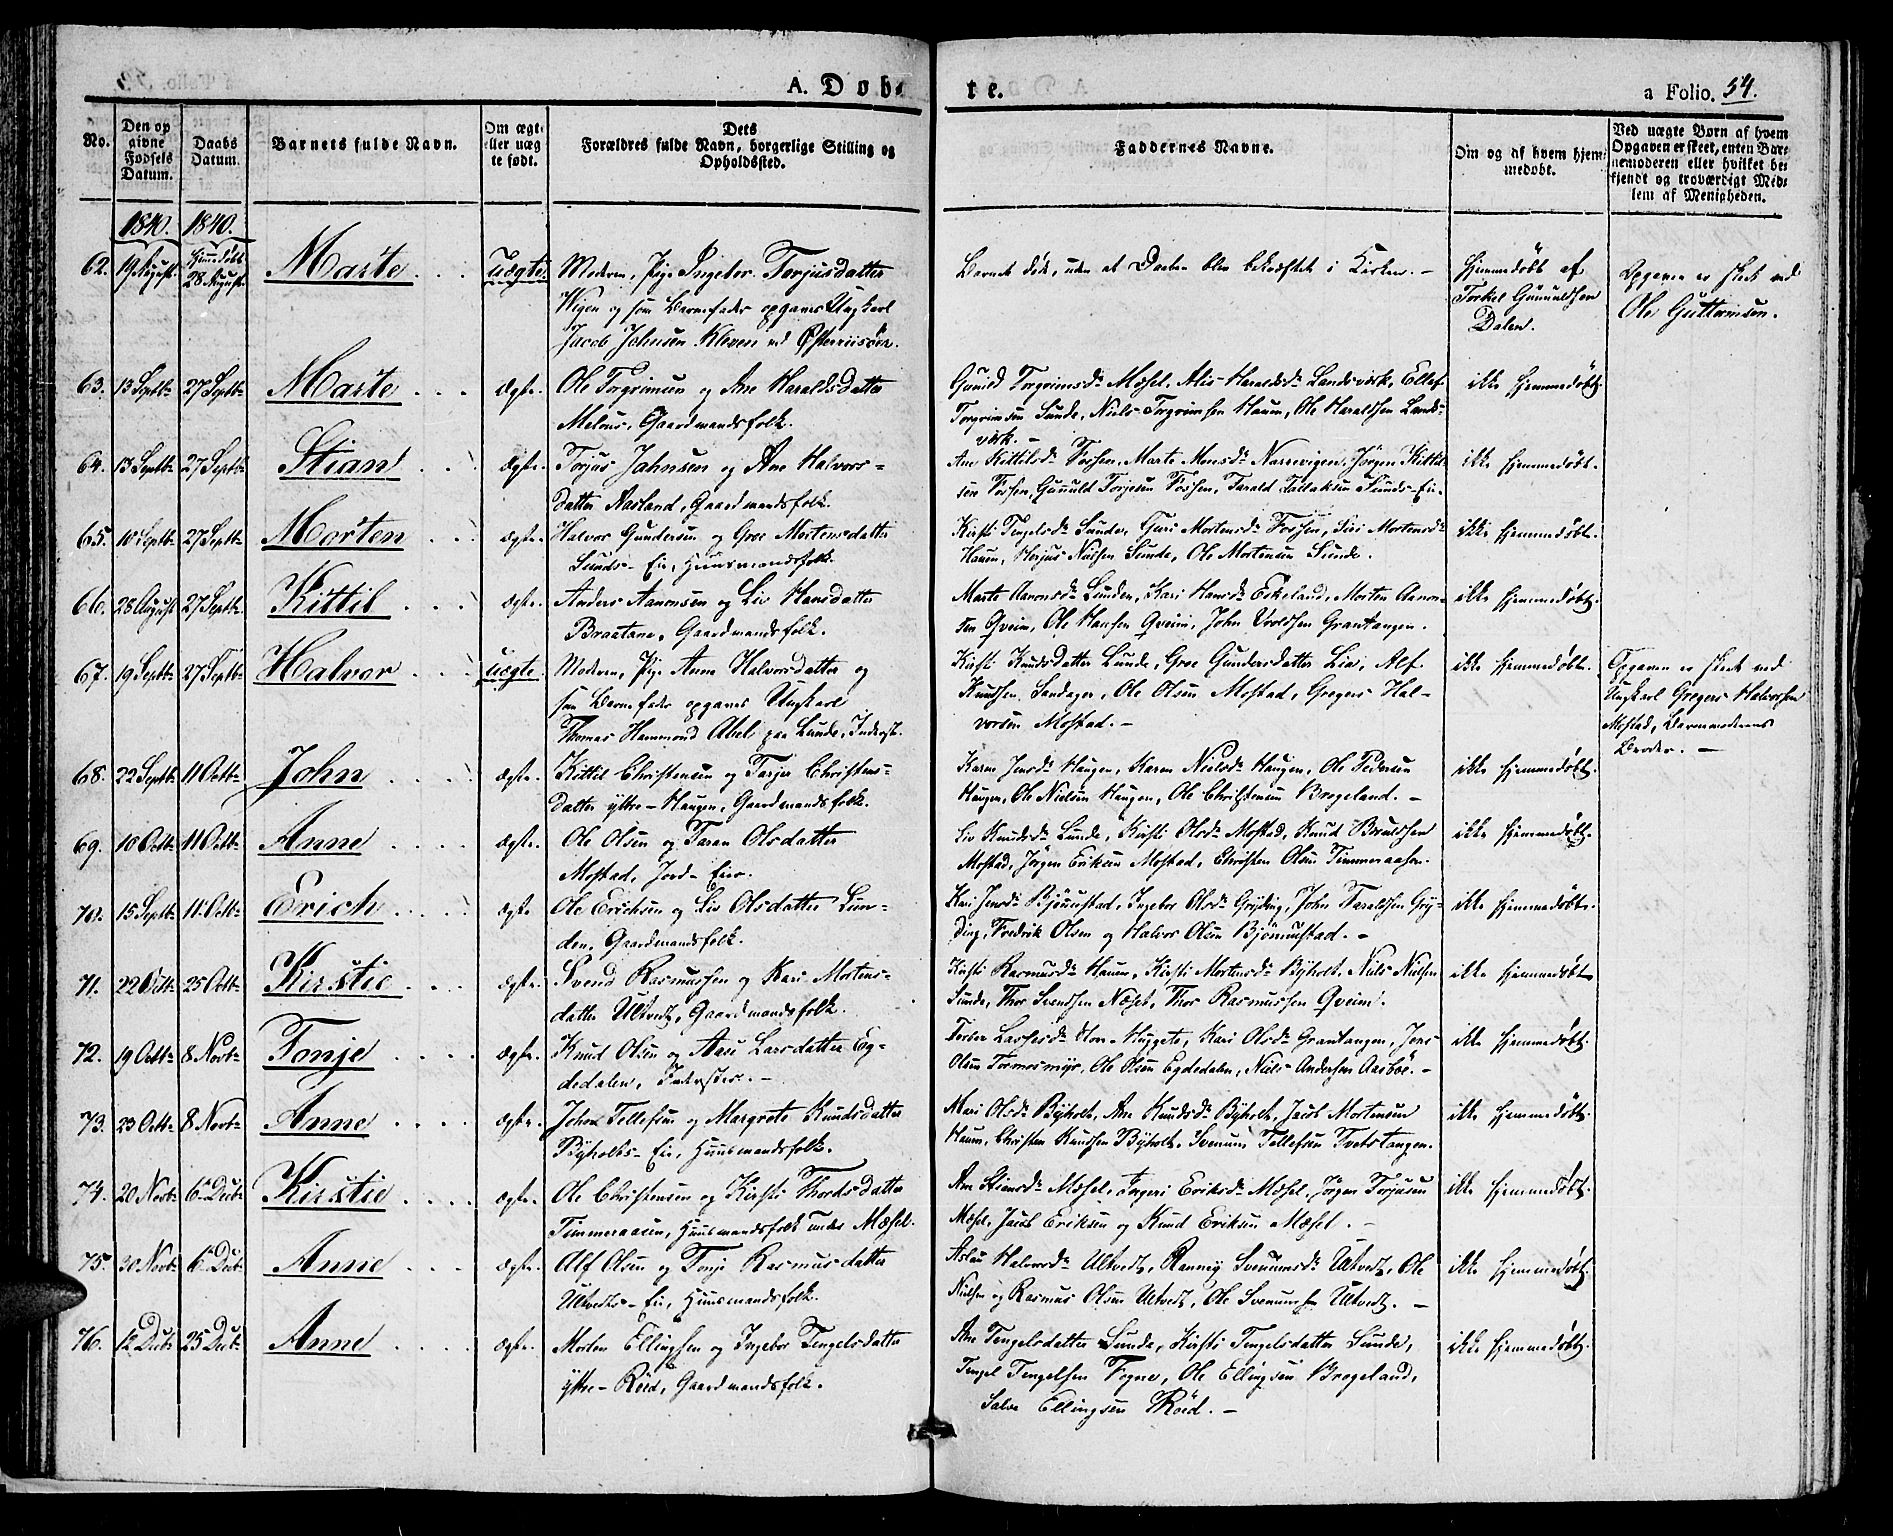 A. Døbte.
a Folio. 54.
No.
Den opgivne Fødsels Datum.
Daabs Datum.
Barnets fulde Navn.
Om ægte eller uægte født.
Dets Forældres fulde Navn, borgerlige Stilling og Opholdssted.
Faddernes Navne.
Om og af hvem hjemmedøbt.
Ved uægte Børn af hvem Opgaven er skeet, enten Barnemoderen eller hvilket bekjendt og troværdigt Medlem af Menigheden.
1840. 1840.
62. 19 August. Hjemdøbt 28 August. Marte uægte. Moderen, Pige Ingebor Torjusdatter
Wigen og som Barnefader opgaves Ungkarl
Jacob Johnsen Kleven ved Østerriisøer.
Barnet døde, uden at Daaben blev bekræftet i Kirken. –
Hjemmedøbt af
Torkel Gunnuldsen
Dalen.
Opgaven er skeet ved
Ole Guttormsen.
63. 13 Septbr 27 Septbr Marte ægte. Ole Torgrimsen og Ane Haraldsdatter
Melaas, Gaardmandsfolk.
Gunild Torgrimsdr Mæsel, Alis Haraldsdr Landsværk, Ellef
Torgrimsen Sunde, Niels Torgrimsen Hauen, Ole Haraldsen Lands-
værk. –
ikke hjemmedøbt.
64. 13 Septbr 27 Septbr Stian ægte. Torjus Jahnsen og Ane Halvors-
datter Aasland, Gaardmandsfolk.
Ane Kittilsdr Fossen, Marte Monsdr Narrevigen, Jörgen Kittil-
sen Fossen, Gunuld Torjesen Fossen, Tarald Tallaksen Sunds-Eie.
ikke hjemmedøbt.
65. 10 Septbr 27 Septbr Morten ægte. Halvor Gundersen og Groe Mortensdatter
Sunds-Eie, Huusmandsfolk.
Kirsti Tengelsdr Sunde, Guri Mortensdr Fossen, Siri Mortensdr
Hauen, Nielsen Sunde, Ole Mortensen Sunde.
ikke hjemmedøbt.
66. 28 August 27 Septbr Kittil ægte. Anders Aanonsen og Liv Hansdatter
Braatene, Gaardmandsfolk.
Marte Aanonsdr Lunden, Kari Hansdr Eikeland, Morten Aanon-
sen Qveim, Ole Hansen Qveim, John Vroldsen Grantangen.
ikke hjemmedøbt.
67. 19 Septbr 27 Septbr Halvor uægte. Moderen, Pige Anne Halvorsdatter og
som Barnefader opgaves Ungkarl
Thomas Hammond Abel paa Lunde, Inderst.
Kirsti Knudsdatter Lunde, Groe Gundersdatter Lia, Alf
Knudsen Sandager, Ole Olsen Mostad, Gregers Hal-
vorsen Mostad. –
ikke hjemmedøbt.
Opgaven er skeet ved
Ungkarl Gregers Halvorsen
Mostad, Barnemoderens
Broder. –
68. 22 Septbr 11 Octbr John ægte. Kittil Christensen og Torjer Christens-
datter ÿttre-Haugen, Gaardmandsfolk.
Karen Jensdr Haugen, Karen Nielsdr Haugen, Ole Pedersen
Haugen, Ole Nielsen Haugen, Ole Christensen Brogeland. –
ikke hjemmedøbt.
69. 10 Octbr 11 Octbr Anne ægte. Ole Olsen og Taran Olsdatter
Mostad, Jord-Eier.
Siv Knudsdr Lunde, Kirsti Olsdr Mostad, Knud
Mostad, Jörgen Eriksen Mostad, Christen Olsen Timmeraasen.
ikke hjemmedøbt.
70. 15 Septbr 11 Octbr Erich ægte. Ole Erichsen og Liv Olsdatter Lun-
den, Gaardmandsfolk.
Kari Jensdr Björnustad, Ingebor Olsdr Gryting, John Taraldsen Gry-
ting, Fredrik Olsen og Halvor Olsen Björnustad. –
ikke hjemmedøbt.
71. 22 Octbr 25 Octbr Kirstie ægte. Svend Rasmussen og Kari Mortens-
datter Ultvedt, Gaardmandsfolk.
Kirsti Rasmusdr Hauen, Kirsti Mortensdr Byholt, Niels Nielsen
Sunde, Thor Svendsen Næset, Thor Rasmussen Qveim.
ikke hjemmedøbt
72. 19 Octbr 8 Novbr Tonje ægte. Knud Olsen og Aase Larsdatter Eg-
dedalen, Inderster. –
Kari Olsdr Grantangen, Jens
Olsen Tormosmyr, Ole Olsen Egdedalen, Niels Andersen Aasböe. –
ikke hjemmedøbt.
73. 23 Octbr 8 Novbr Anne ægte. John Tellefsen og Margrete Knudsdatter
Byholts-Eie, Huusmandsfolk.
Mari Olsdr Byholt, Ane Knudsdr Byholt, Jacob Mortensen
Hauen, Christen Knudsen Byholt, Svenum Tellefsen Tvetstangen.
ikke hjemmedøbt.
74. 20 Novbr 6te Decbr Kirstie ægte. Ole Christensen og Kirsti Thordsdatter
Timmeraasen, Huusmandsfolk under Mæsel.
Ane Stiansdr Mæsel, Ingeri Eriksdr Mæsel, Jörgen Torjusen
Mæsel, Jacob Eriksen og Knud Eriksen Mæsel. –
ikke hjemmedøbt.
75. 30 Novbr 6te Decbr Anne ægte. Alf Olsen og Tonje Rasmusdatter
Ultvedts-Eie, Huusmandsfolk.
Aslau Halvorsdr Ultvedt, Ranneÿ Svenumsdr Ultvedt, Ole
Nielsen og Rasmus Olsen Ultvedt, Ole Svenumsen Ultvedt. –
ikke hjemmedøbt.
76. 12 Decbr 25 Decbr Anne ægte. Morten Ellingsen og Ingebor Tengelsdatter
ÿttre-Röed, Gaardmandsfolk.
Ane Tengelsdatter Sunde, Kirsti Tengelsdatter Sunde,
Tengel Tengelsen Fogne, Ole Ellingsen Brogeland,
Salve Ellingsen Röed. –
ikke hjemmedøbt.